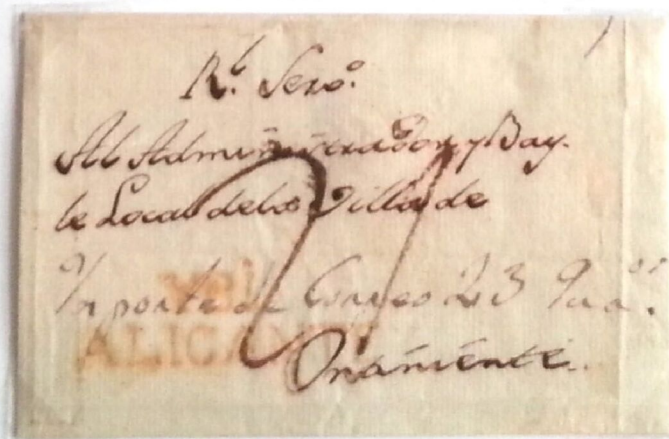 Rl. Servo.
Al Administrador y Bay-
le Local de la Villa de
Ymporte de Correo 23 Qua.os
ALICANTE
Onteniente.